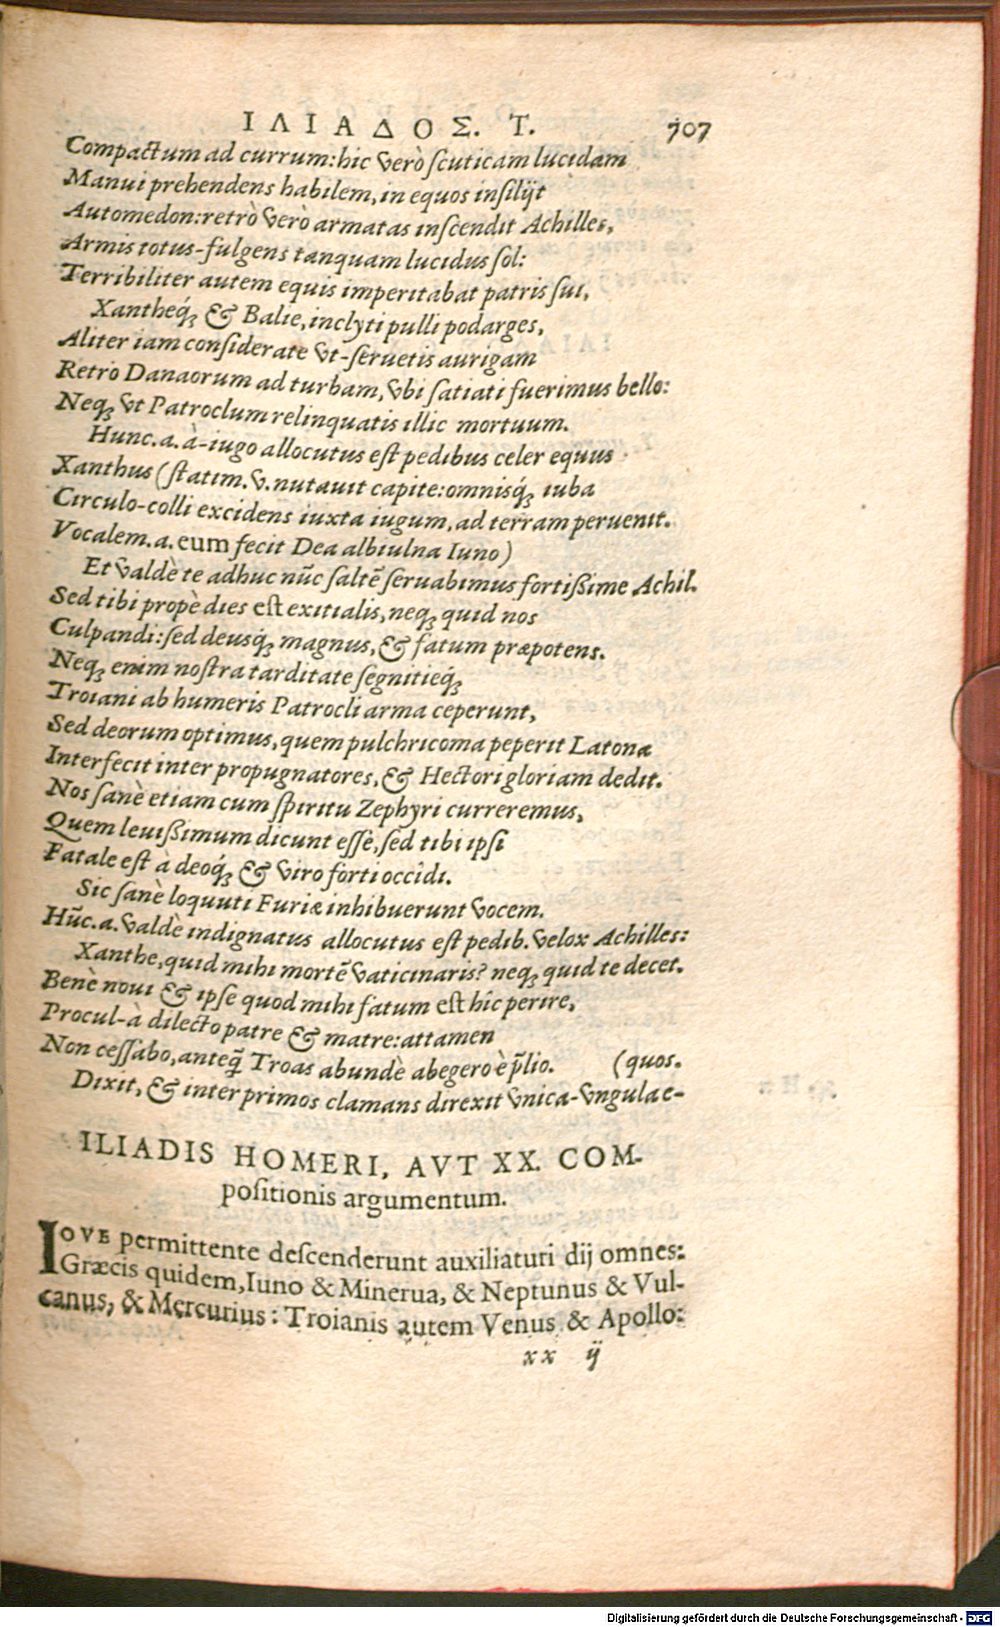 ΙΛΙΑΔΟΣ. Τ. 707
Compactum ad currum: hic verò scuticam lucidam
Manui prehendens habilem, in equos insilijt
Automedon: retrò verò armatas inscendit Achilles,
Armis totus-fulgens tanquam lucidus sol:
Terribiliter autem equis imperitabat patris sui,
Xantheq́ꝫ & Balie, inclyti pulli podarges,
Aliter iam considerate vt-seruetis aurigam
Retro Danaorum ad turbam, vbi satiati fuerimus bello:
Neqꝫ vt Patroclum relinquatis illic mortuum.
Hunc.a. à-iugo allocutus est pedibus celer equus
Xanthus (statim.v. nutauit capite: omnisq́ꝫ iuba
Circulo-colli excidens iuxta iugum, ad terram peruenit.
Vocalem.a. eum fecit Dea albiulna Iuno)
Et valdè te adhuc nūc saltē seruabimus fortißime Achil.
Sed tibi propè dies est exitialis, neqꝫ quid nos
Culpandi: sed deusq́ꝫ magnus, & fatum præpotens.
Neqꝫ enim nostra tarditate segnitieq́ꝫ
Troiani ab humeris Patrocli arma ceperunt,
Sed deorum optimus, quem pulchricoma peperit Latona
Interfecit inter propugnatores, & Hectori gloriam dedit.
Nos sanè etiam cum spiritu Zephyri curreremus,
Quem leuißimum dicunt esse, sed tibi ipsi
Fatale est a deoq́ꝫ & viro forti occîdi.
Sic sanè loquuti Furiæ inhibuerunt vocem.
Hūc.a. valdè indignatus allocutus est pedib. velox Achilles:
Xanthe, quid mihi mortē vaticinaris? neqꝫ quid te decet.
Benè noui & ipse quod mihi fatum est hîc perire,
Procul-à dilecto patre & matre: attamen
Non cessabo, anteq̃ Troas abundè abegero è p̃lio. (quos.
Dixit, & inter primos clamans direxit vnica-vngula e-
ILIADIS HOMERI, AVT XX. COM-
positionis argumentum.
IOVE permittente descenderunt auxiliaturi dij omnes:
Græcis quidem, Iuno & Minerua, & Neptunus & Vul-
canus, & Mercurius: Troianis autem Venus & Apollo:
xx ij
Digitalisierung gefördert durch die Deutsche Forschungsgemeinschaft - DFG